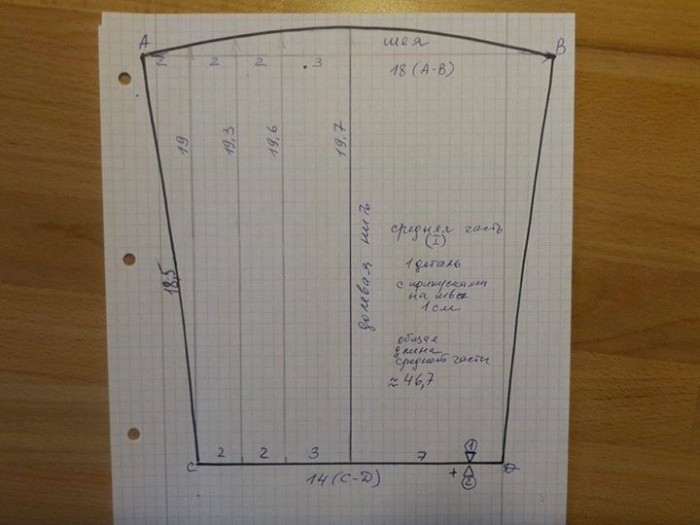 A
шея
B
2 2 2 3
18 (A-B)
19
19,3
19,6
19,7
18,5
долевая нить
средняя часть
(I)
1 деталь
с припусками
на швы
1 см
общая
длина
средней части
≈ 46,7
C
2 2 3 7
1
D
14 (C-D)
+
2